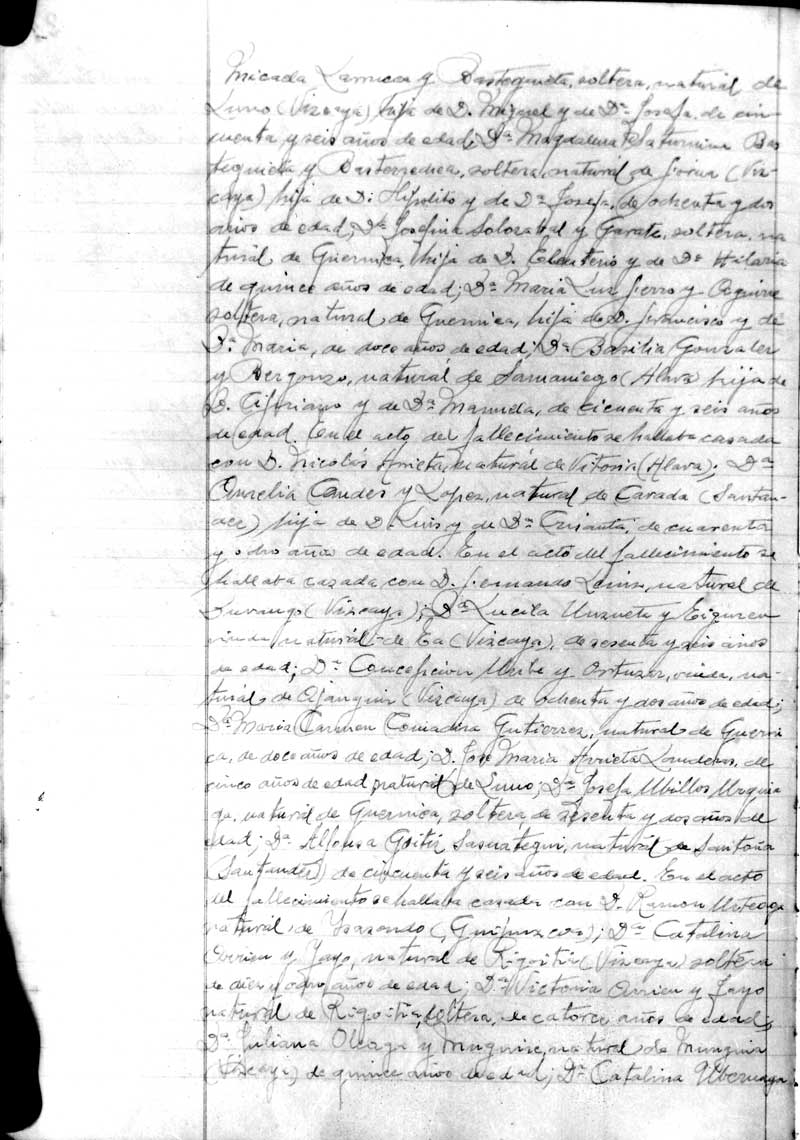 Micaela Larrucea y Basteguieta, soltera, natural de
Luno (Vizcaya) hija de D. Miguel y de Dª Josefa, de cin-
cuenta y seis años de edad; Dª Magdalena Saturnina Bas
teguieta y Basterrechea, soltera, natural de Forua (Viz-
caya) hija de D. Hipólito y de Dª Josefa, de ochenta y dos
años de edad; Dª Josefina Solozabal y Garate, soltera, na
tural de Guernica, hija de D. Eleuterio y de Dª Hilaria
de quince años de edad; Dª Maria Luz Fierro y Aguirre
soltera, natural de Guernica, hija de D. Francisco y de
Dª Maria, de doce años de edad; Dª Basilia Gonzalez
y Berganzo, natural de Samaniego (Alava) hija de
D. Cipriano y de Dª Manuela, de cicuenta y seis años
de edad. En el acto del fallecimiento se hallaba casada
con D. Nicolás Arrieta, natural de Vitoria (Alava); Dª
Aurelia y Lopez, natural de (Santan-
der) hija de D. Luis y de Dª de cuarenta
y ocho años de edad. En el acto del fallecimiento se
hallaba cazada con D. Fernando natural de
Durango (Vizcaya); Dª Lucila Unzueta y Eiguren
viuda natural de Ea (Vizcaya), de sesenta y seis años
de edad; Dª Concepcion Uribe y Ortuzar, viuda, na-
tural de Ajanguiz (Vizcaya) de ochenta y dos años de edad;
Dª Maria Carmen Comadira Gutierrez, natural de Guerni
ca, de doce años de edad; D. Jose Maria Arrieta de
cinco años de edad natural de Luno; Dª Josefa Ubillos
natural de Guernica, soltera, de sesenta y dos años de
edad; Dª Alfonsa Goitiz Sasuategui, natural de Santoña
(Santander) de cincuenta y seis años de edad. En el acto
del fallecimiento se hallaba casada con D. Ramon Urteaga
natural de Ysasondo (Guipuzcoa); Dª Catalina
Orrien y Jayo, natural de Rigoitia (Vizcaya) soltera
de diez y ocho años de edad; Dª Victoria Orrien y Jayo
natural de Rigoitia, soltera, de catorce años de edad;
Dª Juliana Oleaga y natural de Munguia
(Vizcaya) de quince años de edad; Dª Catalina Uberuaga